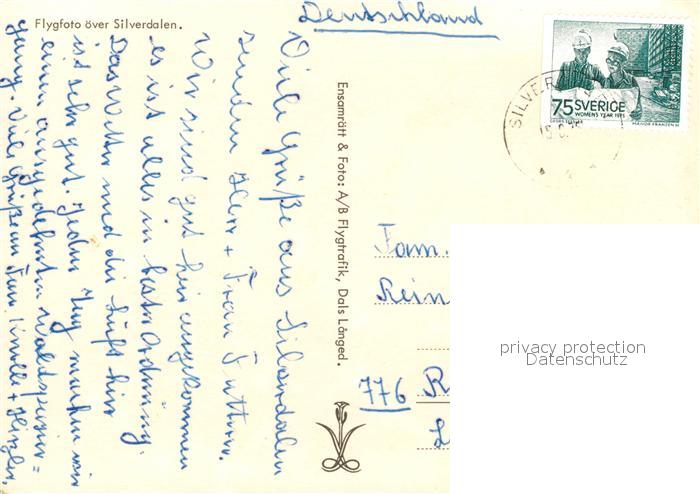 Flygfoto över Silverdalen.
Deutschland
Viele Grüße aus Silverdalen
senden Herr + Frau
Wir sind gut hier angekommen
es ist alles in bester Ordnung.
Das Wetter und die Luft hier
ist sehr gut. Jeden Tag machen wir
einen ausgedehnten Waldspazier=
gang. Viele Grüße an Fam. + 
Ensamrätt & Foto: A/B Flygtrafik, Dals Långed.
75 SVERIGE
WOMEN'S YEAR 1975
MAJVOR FRANZÉN M
SILVER
Fam.
Rein
776 R
L
privacy protection
Datenschutz